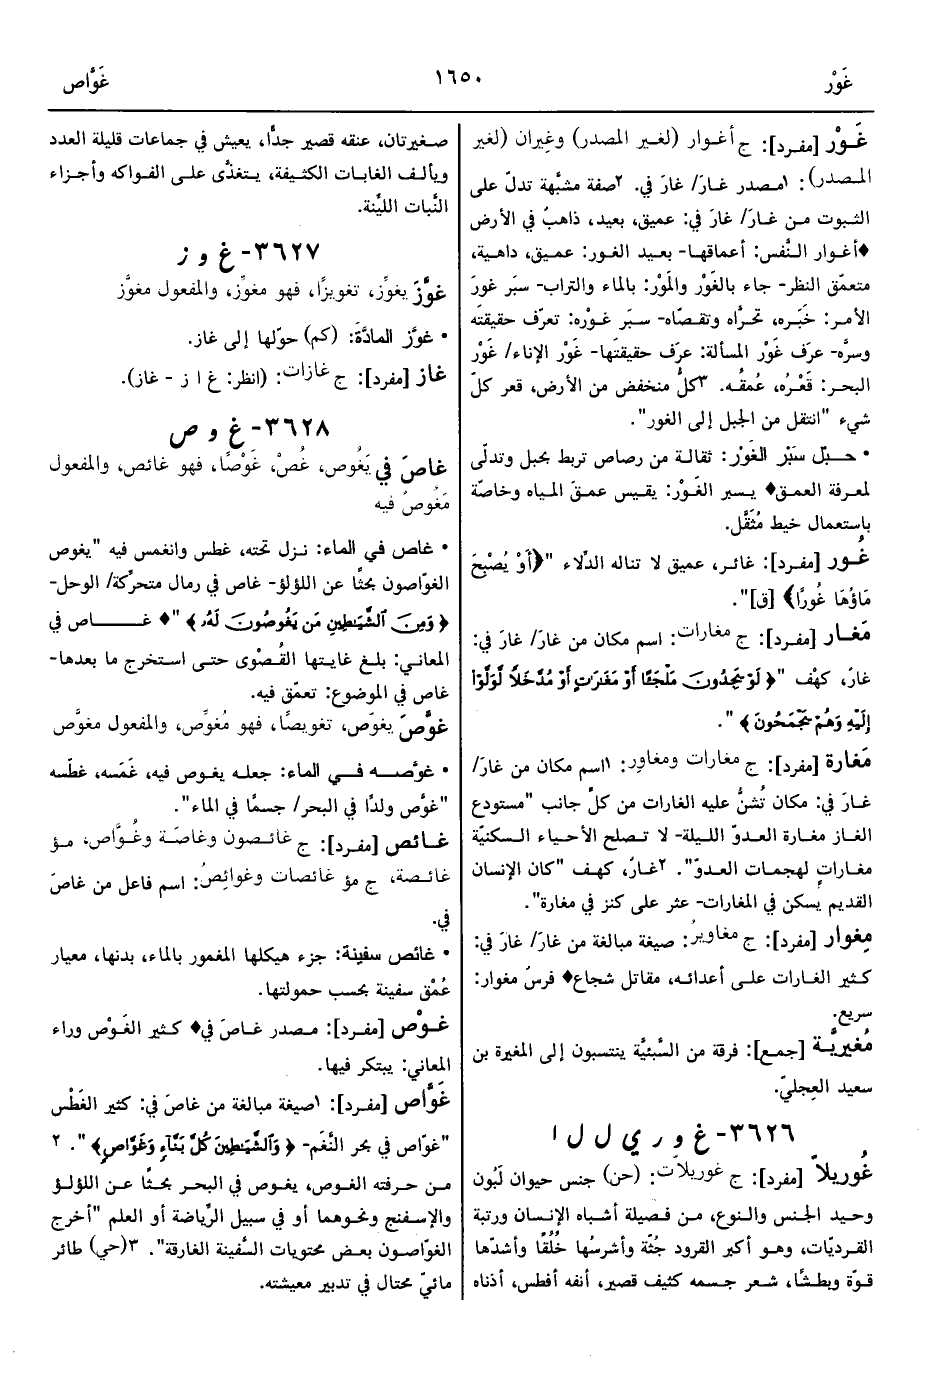 غَوْر
١٦٥٠
غَوَّاص
غَوْر [مفرد]: ج أغوار (لغير المصدر) وغِيران (لغير
المصدر): ١مصدر غارَ/ غارَ في. ٢صفة مشبَّهة تدلّ على
الثبوت من غارَ/ غارَ في: عميق، بعيد، ذاهبٌ في الأرض
♦أغوار النَّفس: أعماقها- بعيد الغور: عميق، داهية،
متعمّق النظر- جاء بالغَوْر والمَوْر: بالماء والتراب- سبَر غورَ
الأمر: خبَره، تحرَّاه وتقصّاه- سبَر غوْره: تعرّف حقيقتَه
وسرَّه- عرَف غَوْر المسألة: عرَف حقيقتَها- غَوْر الإناء/ غَوْر
البحر: قَعْرُه، عُمقُه. ٣كلُّ منخفض من الأرض، قعر كلّ
شيء "انتقل من الجبل إلى الغور".
• حبْل سَبْر الغَوْر: ثقالة من رصاص تربط بحبل وتدلّى
لمعرفة العمق♦ يسبر الغَوْر: يقيس عمقَ المياه وخاصّة
بإستعمال خيط مُثَقَّل.
غُور [مفرد]: غائر، عميق لا تناله الدِّلاء "﴿أَوْ يُصْبِحَ
مَاؤُهَا غُورًا﴾ [ق]".
مَغَار [مفرد]: ج مغارات: اسم مكان من غارَ/ غارَ في:
غارَ، كهْف "﴿لَوْ يَجِدُونَ مَلْجَئًا أَوْ مَغَٰرَٰتٍ أَوْ مُدَّخَلًا لَّوَلَّوْا
إِلَيْهِ وَهُمْ يَجْمَحُونَ﴾".
مَغارة [مفرد]: ج مغارات ومغاوِر: ١اسم مكان من غارَ/
غارَ في: مكان تُشنُّ عليه الغارات من كلّ جانب "مستودع
الغاز مغارة العدوّ الليلة- لا تصلح الأحياء السكنيّة
مغاراتٍ لهجمات العدوّ". ٢غارٌ، كهف "كان الإنسان
القديم يَسكن في المغارات- عثر على كنز في مغارة".
مِغوار [مفرد]: ج مغاويرُ: صيغة مبالغة من غارَ/ غارَ في:
كثير الغارات على أعدائه، مقاتل شجاع♦ فرسٌ مغوار:
سريع.
مُغيريَّة [جمع]: فرقة من السَّبئيَّة ينتسبون إلى المغيرة بن
سعيد العِجليّ.
٣٦٢٦- غ و ر ي ل ل ا
غُورِيلاَّ [مفرد]: ج غوريلاّت: (حن) جنس حيوان لَبُون
وحيد الجنس والنوع، من فصيلة أشباه الإنسان ورتبة
القرديّات، وهو أكبر القرود جُثّة وأشرسُها خُلُقًا وأشدّها
قوّة وبطشًا، شعر جسمه كثيف قصير، أنفه أفطس، أذناه
صغيرتان، عنقه قصير جدًّا، يعيش في جماعات قليلة العدد
ويألف الغابات الكثيفة، يتغذَّى على الفواكه وأجزاء
النَّبات الليِّنة.
٣٦٢٧- غ و ز
غوَّزَ يغوِّز، تغويزًا، فهو مغوِّز، والمفعول مغوَّز
• غوَّز المادَّة: (كم) حوّلها إلى غاز.
غاز [مفرد]: ج غازات: (انظر: غ ا ز - غاز).
٣٦٢٨- غ و ص
غاصَ في يَغُوص، غُصْ، غَوْصًا، فهو غائص، والمفعول
مَغُوصٌ فيه
• غاص في الماء: نزل تحته، غطس وانغمس فيه "يغوص
الغوّاصون بحثًا عن اللؤلؤ- غاص في رمال متحرّكة/ الوحل-
﴿وَمِنَ ٱلشَّيَٰطِينِ مَن يَغُوصُونَ لَهُۥ﴾"♦ غاص في
المعاني: بلغ غايتها القُصْوَى حتى استخرج ما بعدها-
غاص في الموضوع: تعمّق فيه.
غوَّصَ يغوّص، تغويصًا، فهو مُغوِّص، والمفعول مغوَّص
• غوّصه في الماء: جعله يغوص فيه، غَمَسه، غطّسه
"غوَّص ولدًا في البحر/ جسمًا في الماء".
غائص [مفرد]: ج غائصون وغاصَة وغُوَّاص، مؤ
غائصة، ج مؤ غائصات وغوائصُ: اسم فاعل من غاصَ
في.
• غائص سفينة: جزء هيكلها المغمور بالماء، بدنها، معيار
عُمْق سفينة بحسب حمولتها.
غَوْص [مفرد]: مصدر غاصَ في♦ كثير الغَوْص وراء
المعاني: يبتكر فيها.
غَوَّاص [مفرد]: ١صيغة مبالغة من غاصَ في: كثير الغَطْس
"غوّاص في بحر النَّغَم- ﴿وَٱلشَّيَٰطِينَ كُلَّ بَنَّآءٍ وَغَوَّاصٍ﴾". ٢
من حرفته الغوص، يغوص في البحر بحثًا عن اللؤلؤ
والإسفنج ونحوهما أو في سبيل الرِّياضة أو العلم "أخرج
الغوّاصون بعض محتويات السَّفينة الغارقة". ٣(حي) طائر
مائيّ محتال في تدبير معيشته.